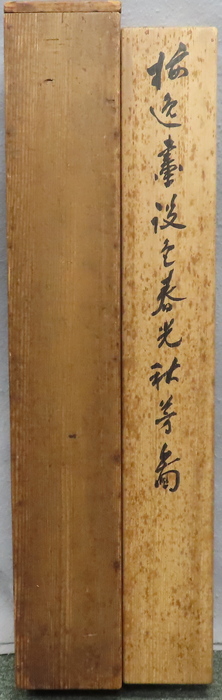 梅逸畫設色春光秋芳圖